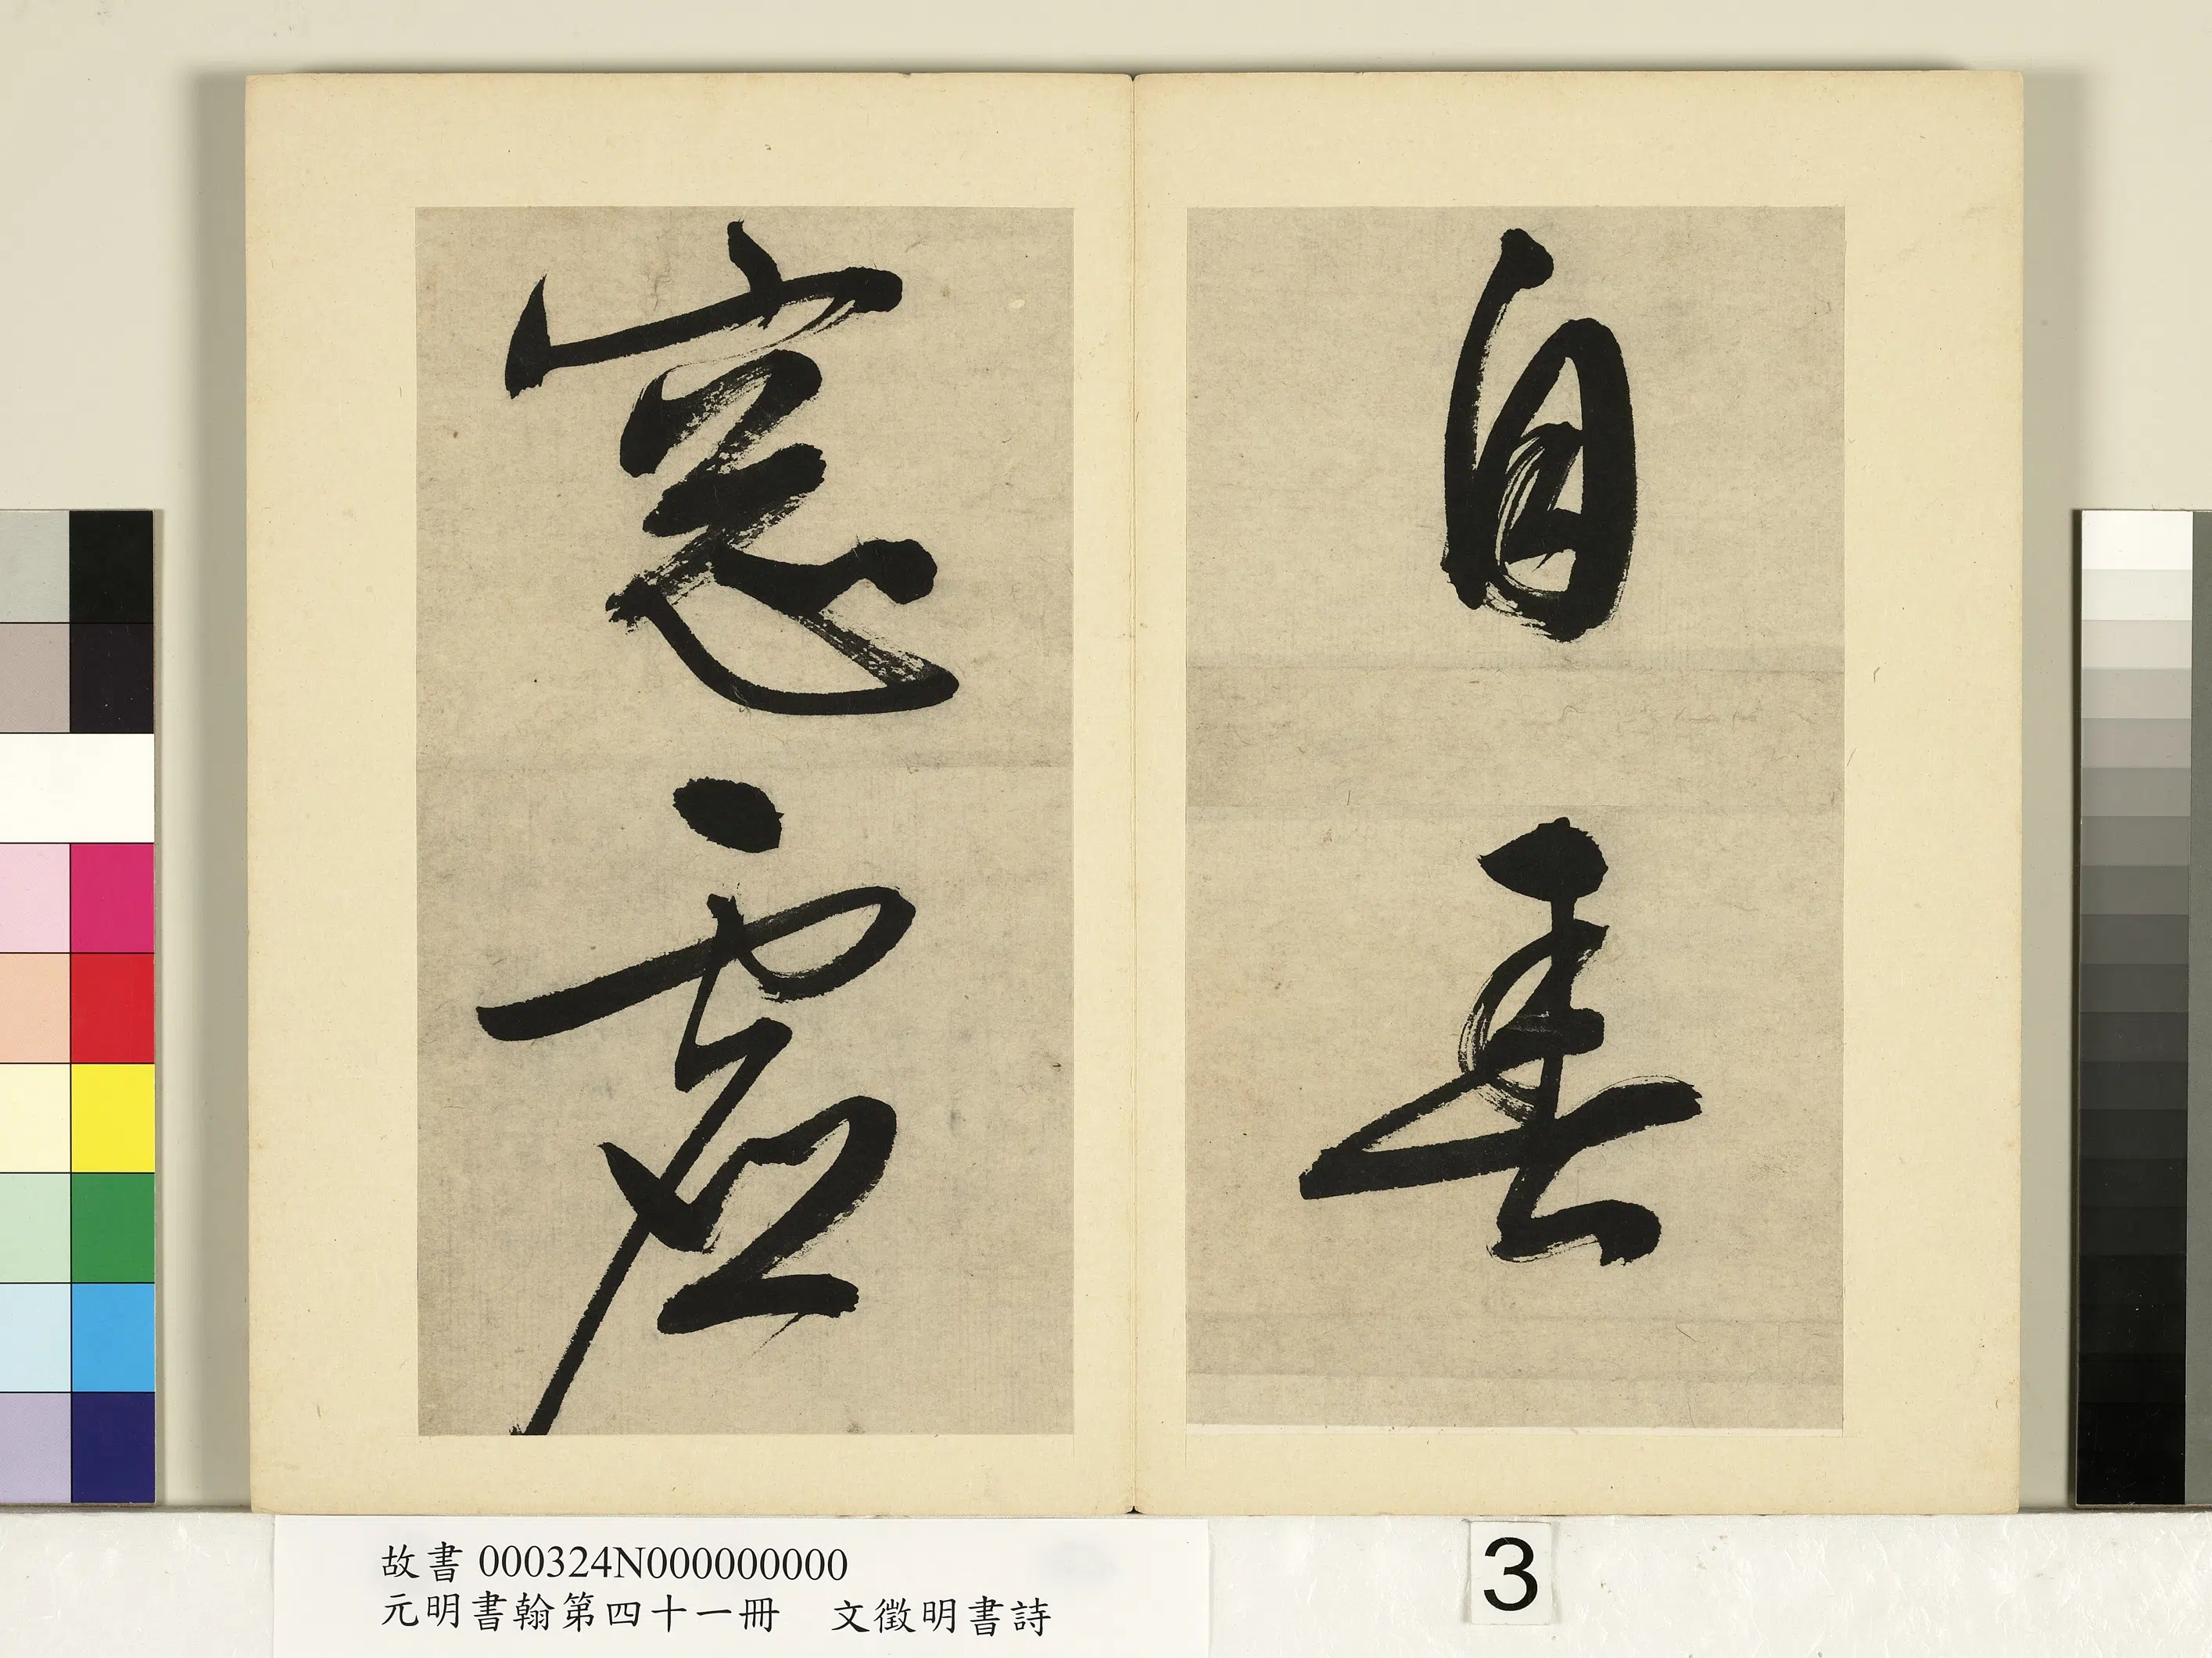 自垂
窓虛
故書 000324N000000000
元明書翰第四十一冊 文徵明書詩
3